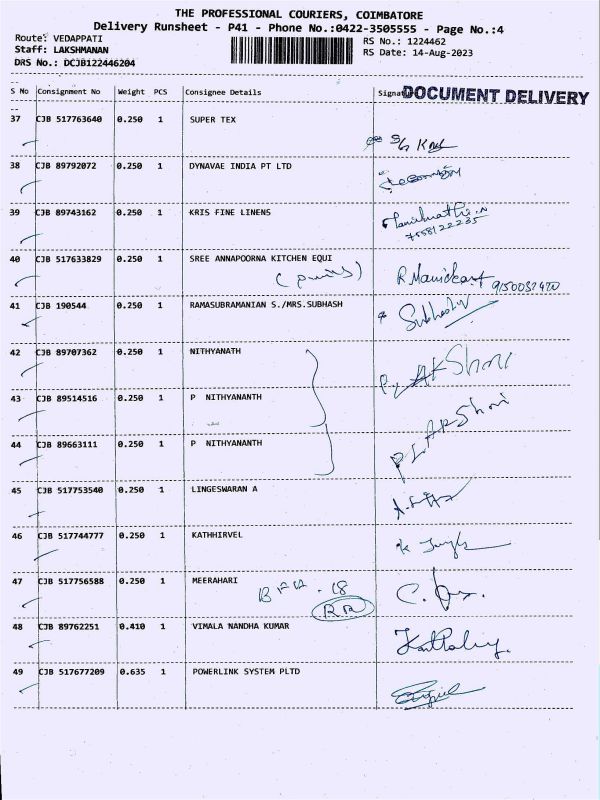 THE PROFESSIONAL COURIERS, COIMBATORE
Delivery Runsheet - P41 - Phone No.:0422-3505555 - Page No.:4
Route: VEDAPPATI
RS No.: 1224462
Staff: LAKSHMANAN
RS Date: 14-Aug-2023
DRS No.: DCJB122446204
DOCUMENT DELIVERY
S No Consignment No Weight PCS Consignee Details Signature
37 CJB 517763640 0.250 1 SUPER TEX
38 CJB 89792072 0.250 1 DYNAVAE INDIA PT LTD
39 CJB 89743162 0.250 1 KRIS FINE LINENS
7558122235
40 CJB 517633829 0.250 1 SREE ANNAPOORNA KITCHEN EQUI
R. Manickam
41 CJB 190544 0.250 1 RAMASUBRAMANIAN S./MRS.SUBHASH
42 CJB 89707362 0.250 1 NITHYANATH
AKShni
43 CJB 89514516 0.250 1 P NITHYANANTH
AKShni
44 CJB 89663111 0.250 1 P NITHYANANTH
45 CJB 517753540 0.250 1 LINGESWARAN A
46 CJB 517744777 0.250 1 KATHHIRVEL
47 CJB 517756588 0.250 1 MEERAHARI
48 CJB 89762251 0.410 1 VIMALA NANDHA KUMAR
49 CJB 517677209 0.635 1 POWERLINK SYSTEM PLTD